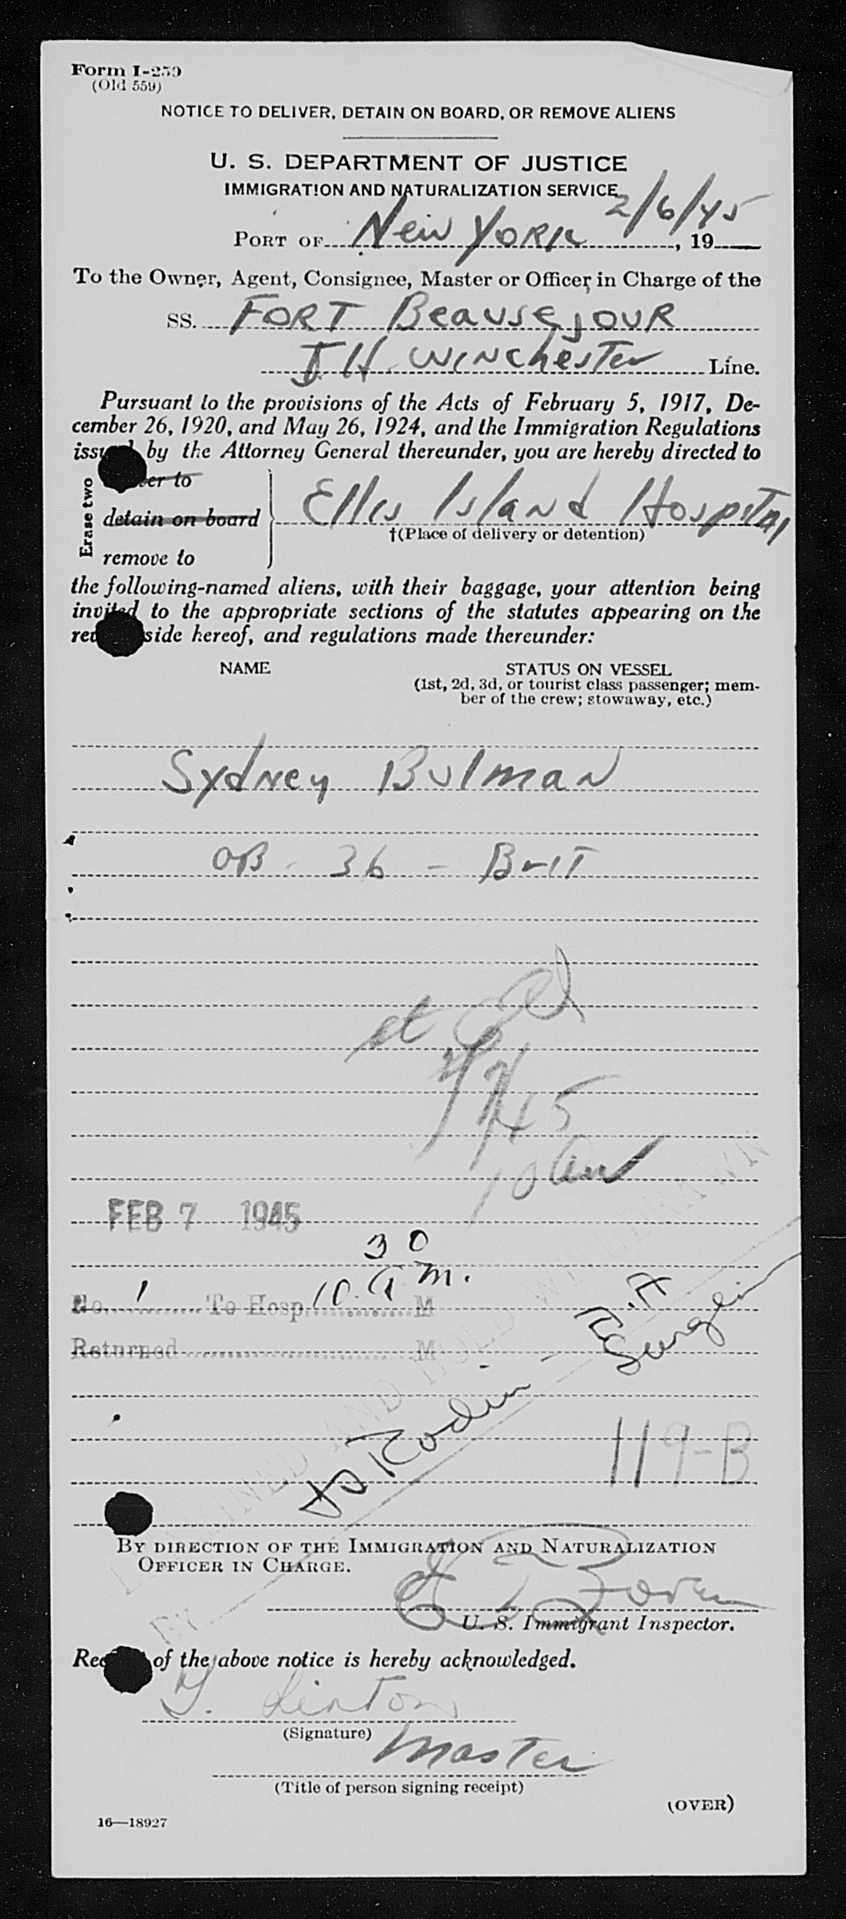 Form I-259
(Old 559)
NOTICE TO DELIVER, DETAIN ON BOARD, OR REMOVE ALIENS
U. S. DEPARTMENT OF JUSTICE
IMMIGRATION AND NATURALIZATION SERVICE
2/6/45
PORT OF New York, 19
To the Owner, Agent, Consignee, Master or Officer in Charge of the
SS. FORT Beausejour
J.H. Winchester Line.
Pursuant to the provisions of the Acts of February 5, 1917, De-
cember 26, 1920, and May 26, 1924, and the Immigration Regulations
issued by the Attorney General thereunder, you are hereby directed to
Erase two
deliver to
detain on board
remove to
Ellis Island Hospital
†(Place of delivery or detention)
the following-named aliens, with their baggage, your attention being
invited to the appropriate sections of the statutes appearing on the
reverse side hereof, and regulations made thereunder:
NAME
STATUS ON VESSEL
(1st, 2d, 3d, or tourist class passenger; mem-
ber of the crew; stowaway, etc.)
Sydney Bulman
OB - 36 - Brit
2/7/45
10 am
FEB 7 1945
30
No. 1 To Hosp. 10 a.m. M
Returned M
to Rodin -
119-B
BY DIRECTION OF THE IMMIGRATION AND NATURALIZATION
OFFICER IN CHARGE.
U. S. Immigrant Inspector.
Receipt of the above notice is hereby acknowledged.
Y. Linton
(Signature)
Master
(Title of person signing receipt)
(OVER)
16—18927